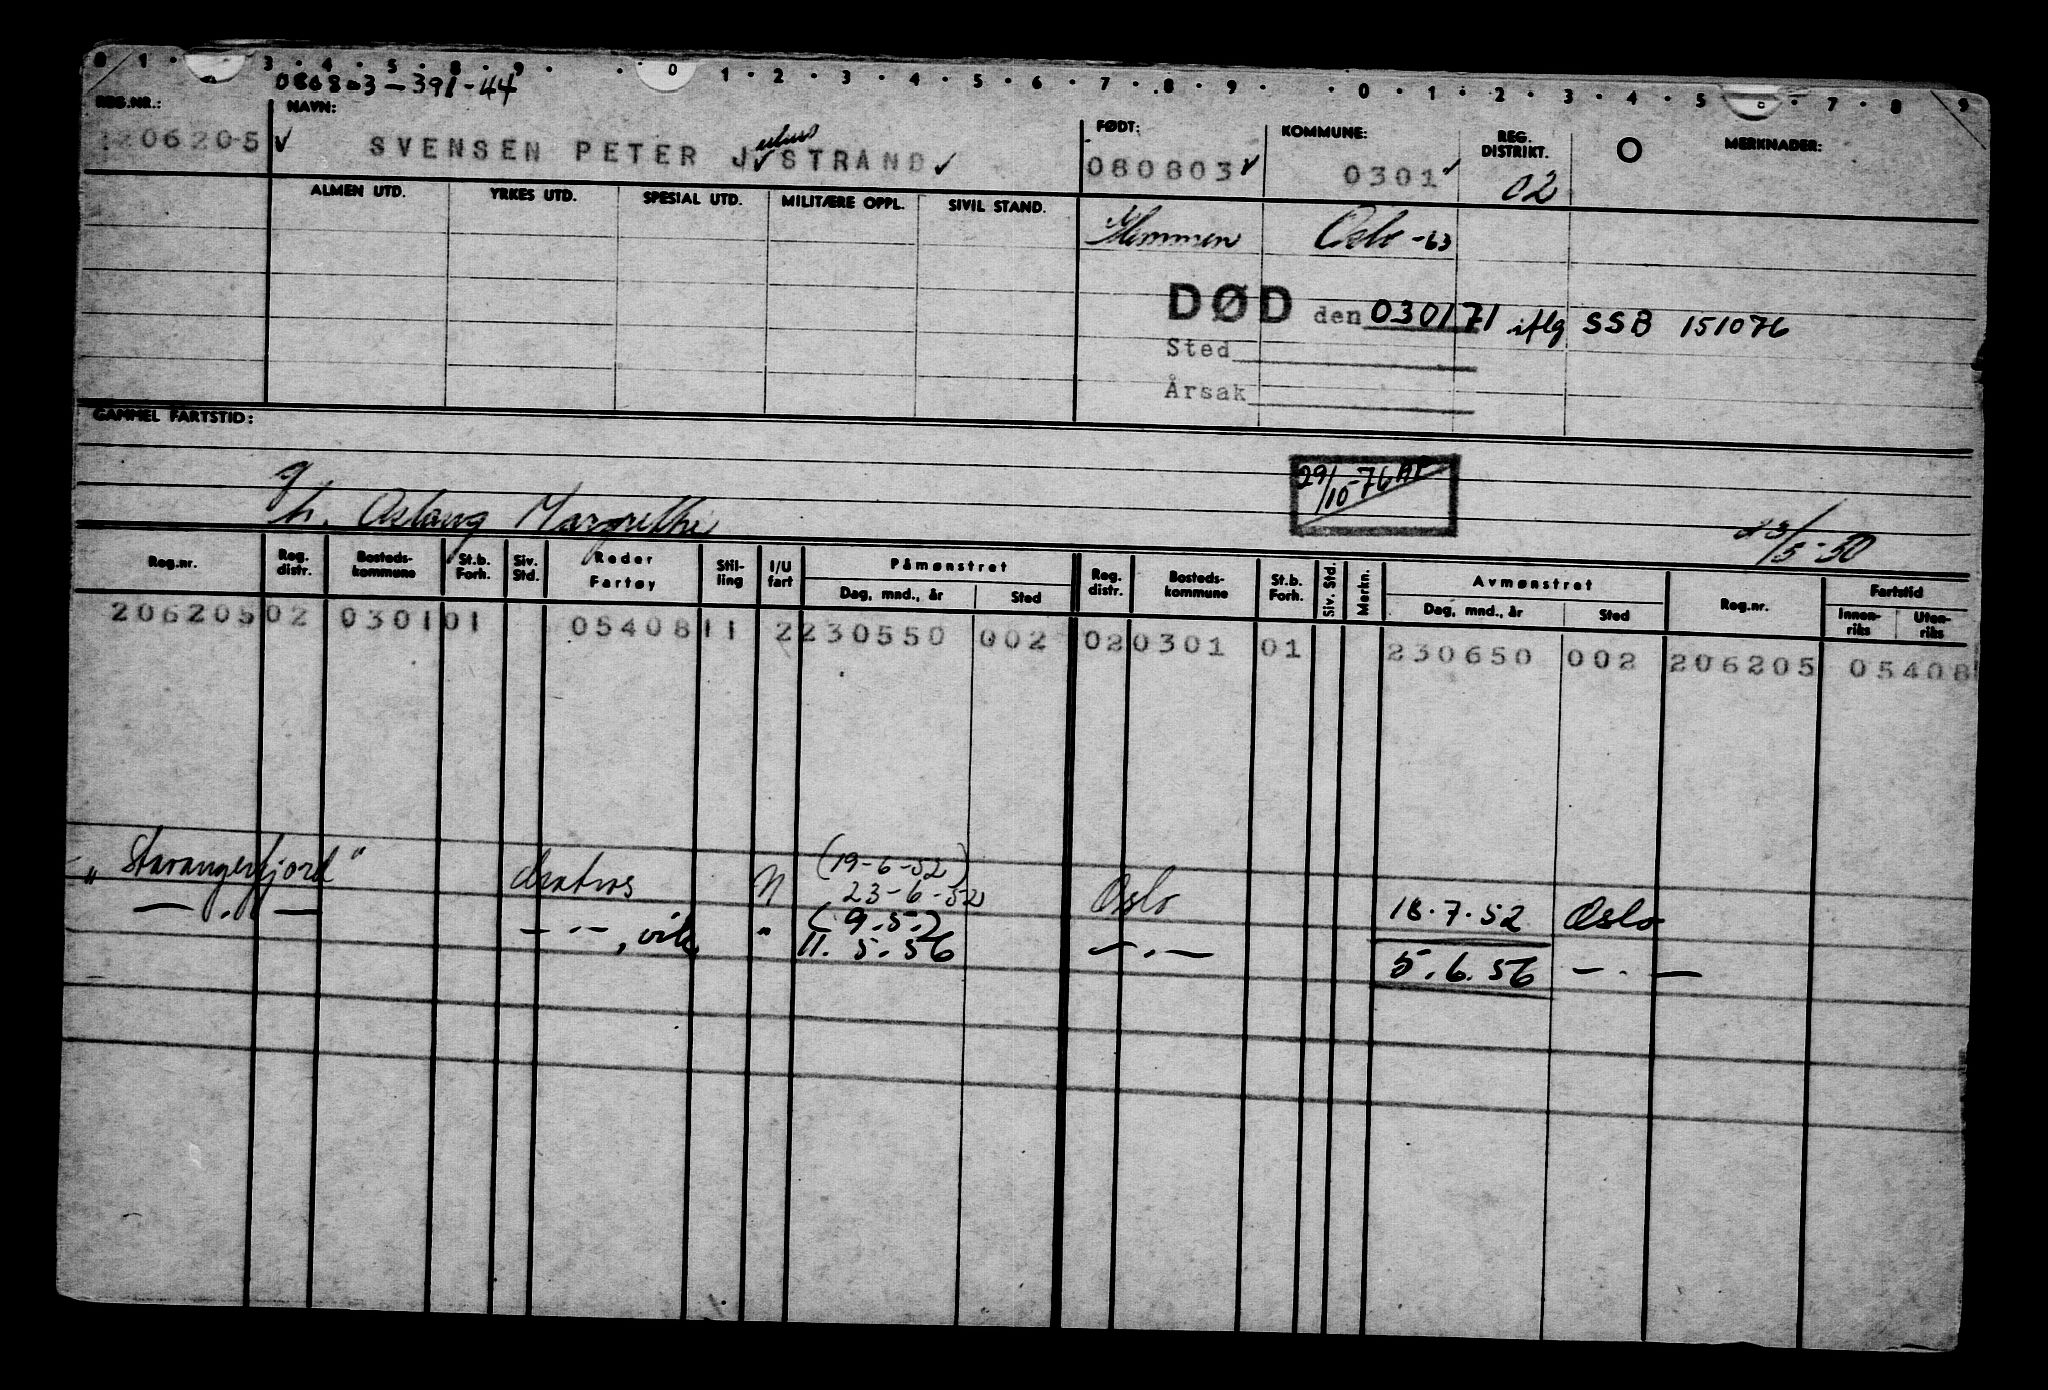 0 1 · 3 · 4 · 5 · 8 · 9 · · 0 · 1 · 2 · 3 · 4 · 5 · 6 · 7 · 8 · 9 · · 0 · 1 · 2 · 3 · 4 · 5 · 7 · 8 · 9
080803-391-44
REG.NR.: NAVN: FØDT: KOMMUNE: REG. DISTRIKT. O MERKNADER:
ulius
20620-5 ✓ SVENSEN PETER J ✓ STRAND ✓ 080803 ✓ 0301 ✓ 02
ALMEN UTD. YRKES UTD. SPESIAL UTD. MILITÆRE OPPL. SIVIL STAND.
Hemmen Oslo -63
DØD den 030171 iflg SSB 151076
Sted
Årsak
GAMMEL FARTSTID:
29/10-76
g/h. Aslaug Margrethe 23/5-50
Reg.nr. Reg. distr. Bosteds-kommune St.b. Forh. Siv. Std. Reder Fartøy Stil-ling I/U fart Påmønstret Dag, mnd., år Sted Reg. distr. Bosteds-kommune St.b. Forh. Siv. Std. Merkn. Avmønstret Dag, mnd., år Sted Reg.nr. Fartstid Innen-riks Uten-riks
206205 02 0301 01 05408 11 2 230550 002 02 0301 01 230650 002 206205 05408
(19-6-52)
"Stavangerfjord" Matros N 23-6-52 Oslo 18.7.52 Oslo
(9.5.)
— . — — . . —, vik. " 11.5.56 — . — 5.6.56 — . —